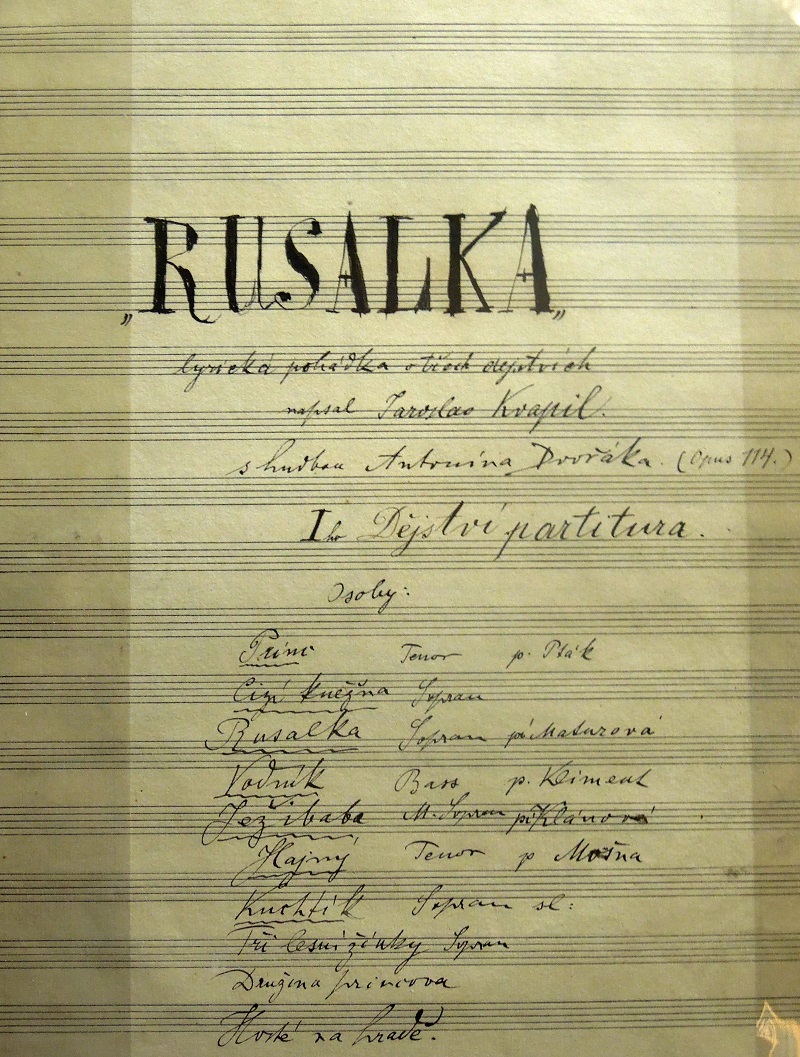 „RUSALKA„
lyrická pohádka o třech dějstvích
napsal Jaroslav Kvapil.
s hudbou Antonína Dvořáka. (Opus 114.)
I ho Dějství partitura.
Osoby:
Princ Tenor p. Pták
Cizí kněžna Sopran
Rusalka Sopran pí Maturová
Vodník Bass p. Kliment
Ježibaba M. Sopran pí Klánová
Hajný Tenor p Mošna
Kuchtík Sopran sl:
Tři lesní žínky Sopran
Družina princova
Hosté na hradě.